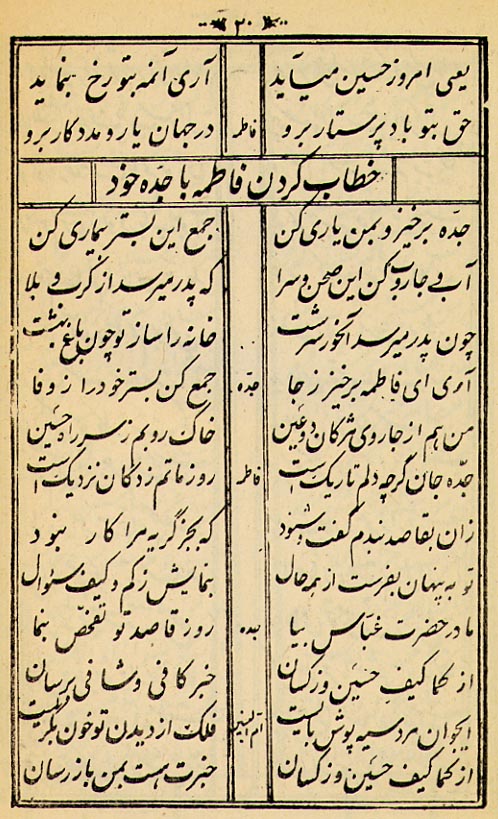 ۲۰
یعنی امروز حسین میآید آری آئمه بتو رخ بنماید
حق بتو باد پرستار برو فاطمه در جهان یار و مدد کار برو
خطاب کردن فاطمه با جدّه خود
جدّه برخیز و بمن یاری کن جمع این بستر بیماری کن
آب و جاروب کن این صحن و سرا که پدر میرسد از کرب و بلا
چون پدر میرسد آنخور سرشت خانه را ساز تو چون باغ بهشت
آری ای فاطمه برخیز ز جا جدّه جمع کن بستر خود را ز وفا
من هم از جاروی مژگان دو عین خاک روبم ز سر راه حسین
جدّه جان گرچه دلم تاریک است فاطمه روز ماتم زدکان نزدیک است
زان بقاصد ندم گفت و شنود که بجز گریه مرا کار نبود
تو به پنهان بفرست از همه حال بنمایش ز کم و کیف سئوال
مادر حضرت عبّاس بیا جده رو ز قاصد تو تفحّص بنما
از کما کیف حسین وز کسان خبر کافی و شافی برسان
ایجوان مرد سیه پوش بایست امّ البنین فلک از دیدن تو خون بگریست
از کما کیف حسین وز کسان خبرت هست بمن باز رسان